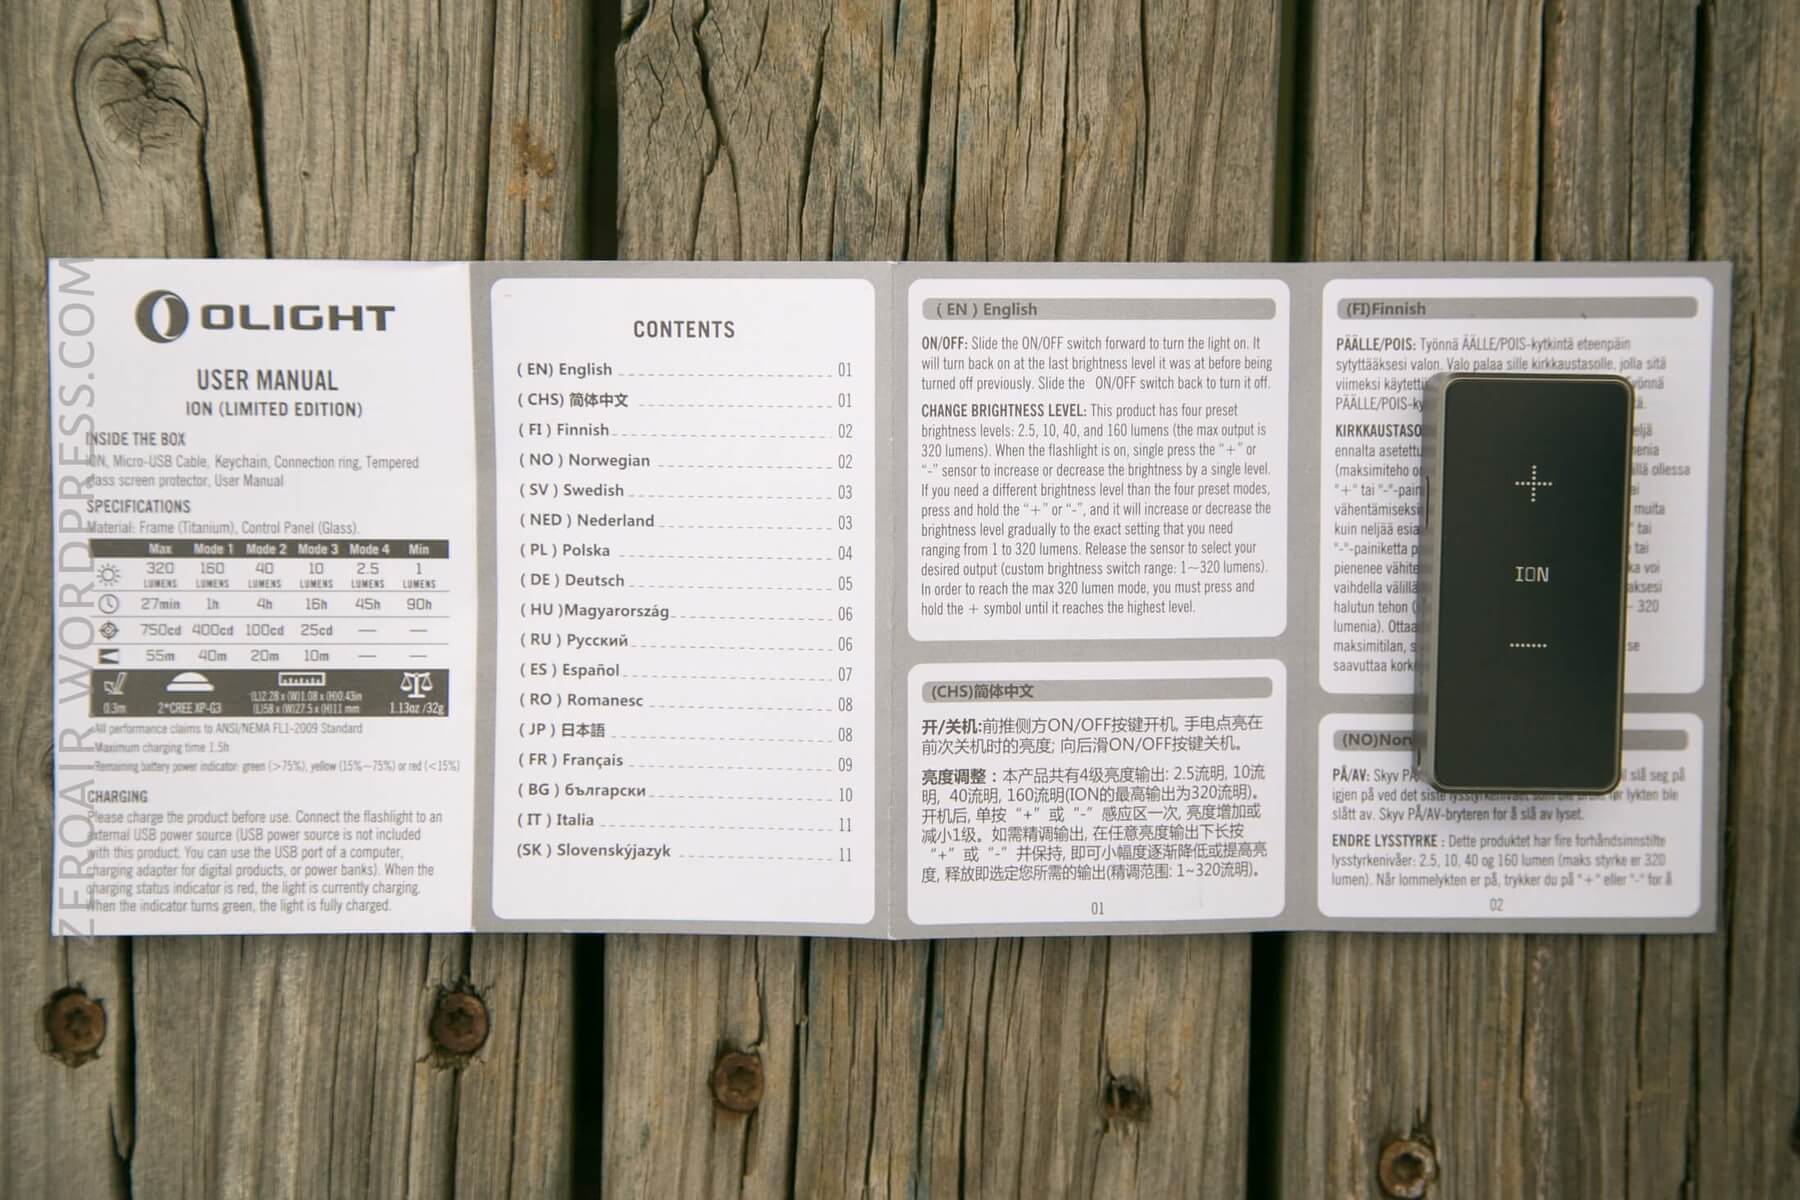 ZEROAIR.WORDPRESS.COM
OLIGHT
USER MANUAL
ION (LIMITED EDITION)
INSIDE THE BOX
ION, Micro-USB Cable, Keychain, Connection ring, Tempered
glass screen protector, User Manual
SPECIFICATIONS
Material: Frame (Titanium), Control Panel (Glass).
Max Mode 1 Mode 2 Mode 3 Mode 4 Min
320 160 40 10 2.5 1
LUMENS LUMENS LUMENS LUMENS LUMENS LUMENS
27min 1h 4h 16h 45h 90h
750cd 400cd 100cd 25cd — —
55m 40m 20m 10m — —
(L)2.28 x (W)1.08 x (H)0.43in
0.3m 2*CREE XP-G3 (L)58 x (W)27.5 x (H)11 mm 1.13oz /32g
All performance claims to ANSI/NEMA FL1-2009 Standard
Maximum charging time 1.5h
Remaining battery power indicator: green (>75%), yellow (15%~75%) or red (<15%)
CHARGING
Please charge the product before use. Connect the flashlight to an
external USB power source (USB power source is not included
with this product. You can use the USB port of a computer,
charging adapter for digital products, or power banks). When the
charging status indicator is red, the light is currently charging.
When the indicator turns green, the light is fully charged.
CONTENTS
( EN) English 01
( CHS) 简体中文 01
( FI ) Finnish 02
( NO ) Norwegian 02
( SV ) Swedish 03
( NED ) Nederland 03
( PL ) Polska 04
( DE ) Deutsch 05
( HU )Magyarország 06
( RU ) Русский 06
( ES ) Español 07
( RO ) Romanesc 08
( JP ) 日本語 08
( FR ) Français 09
( BG ) български 10
( IT ) Italia 11
(SK ) Slovenskýjazyk 11
( EN ) English
ON/OFF: Slide the ON/OFF switch forward to turn the light on. It
will turn back on at the last brightness level it was at before being
turned off previously. Slide the ON/OFF switch back to turn it off.
CHANGE BRIGHTNESS LEVEL: This product has four preset
brightness levels: 2.5, 10, 40, and 160 lumens (the max output is
320 lumens). When the flashlight is on, single press the “+” or
“-” sensor to increase or decrease the brightness by a single level.
If you need a different brightness level than the four preset modes,
press and hold the “+” or “-”, and it will increase or decrease the
brightness level gradually to the exact setting that you need
ranging from 1 to 320 lumens. Release the sensor to select your
desired output (custom brightness switch range: 1~320 lumens).
In order to reach the max 320 lumen mode, you must press and
hold the + symbol until it reaches the highest level.
(CHS)简体中文
开/关机:前推侧方ON/OFF按键开机, 手电点亮在
前次关机时的亮度; 向后滑ON/OFF按键关机。
亮度调整：本产品共有4级亮度输出: 2.5流明, 10流
明, 40流明, 160流明(ION的最高输出为320流明)。
开机后, 单按“+”或“-”感应区一次, 亮度增加或
减小1级。如需精调输出, 在任意亮度输出下长按
“+”或“-”并保持, 即可小幅度逐渐降低或提高亮
度, 释放即选定您所需的输出(精调范围: 1~320流明)。
01
(FI)Finnish
PÄÄLLE/POIS: Työnnä ÄÄLLE/POIS-kytkintä eteenpäin
sytyttääksesi valon. Valo palaa sille kirkkaustasolle, jolla sitä
viimeksi
PÄÄLLE/POIS-ky
KIRKKAUSTASO
ennalta
(maksimiteho
"+" tai "-"-pain
vähentämiseksi
muita
kuin neljää esia " tai
"-"-painiketta p tai
pienenee ka voi
vaihdella
halutun tehon ( – 320
lumenia). Ottaa
maksimitilan, s se
saavuttaa
ION
(NO)Nor
PÅ/AV: Skyv l slå seg på
igjen på ved det siste lysstyrkenivået som ble brukt før lykten ble
slått av. Skyv PÅ/AV-bryteren for å slå av lyset.
ENDRE LYSSTYRKE : Dette produktet har fire forhåndsinnstilte
lysstyrkenivåer: 2.5, 10, 40 og 160 lumen (maks styrke er 320
lumen). Når lommelykten er på, trykker du på "+" eller "-" for å
02